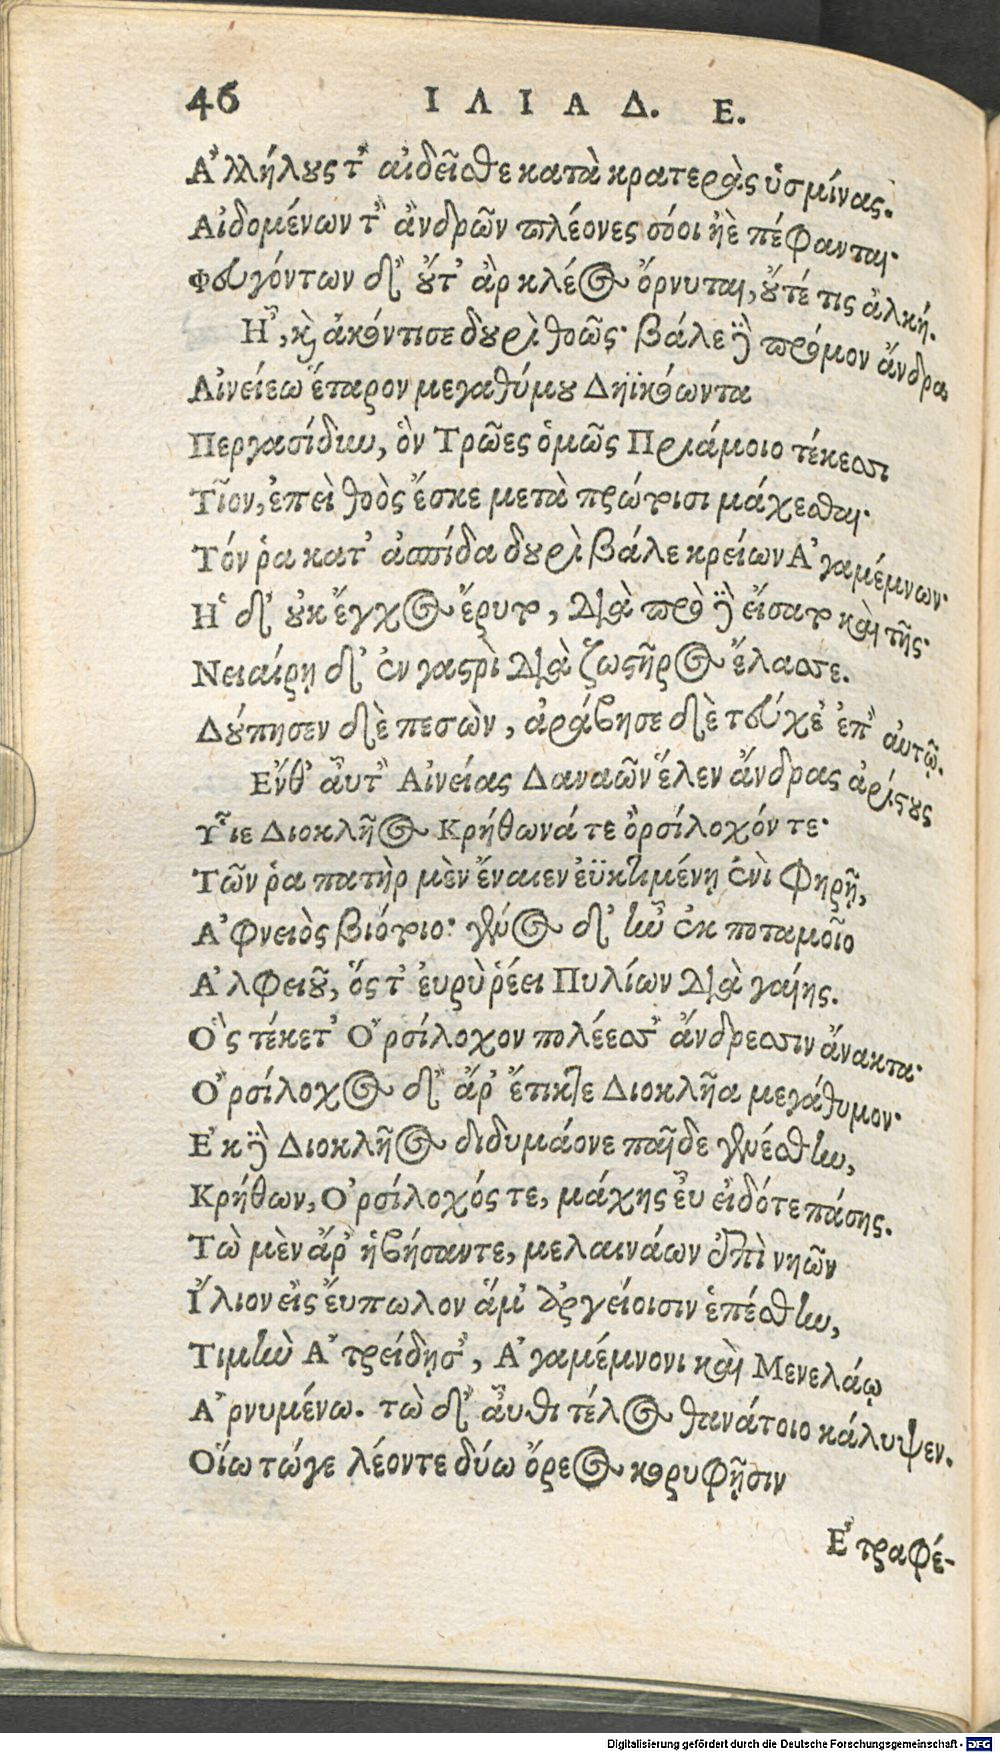 46 ΙΛΙΑΔ. Ε.
Ἀλλήλους τ' αἰδεῖσθε κατὰ κρατερὰς ὑσμίνας.
Αἰδομένων τ' ἀνδρῶν πλέονες σόοι ἠὲ πέφανται·
Φευγόντων δ' οὔτ' ἂρ κλέος ὄρνυται, οὔτέ τις ἀλκή.
Ἦ, καὶ ἀκόντισε δουρὶ θοῶς· βάλε δὲ πρόμον ἄνδρα
Αἰνείεω ἕταρον μεγαθύμου Δηϊκόωντα
Περγασίδην, ὃν Τρῶες ὁμῶς Πριάμοιο τέκεσσι
Τῖον, ἐπεὶ θοὸς ἔσκε μετὰ πρώτοισι μάχεσθαι·
Τόν ῥα κατ' ἀσπίδα δουρὶ βάλε κρείων Ἀγαμέμνων·
Ἡ δ' οὐκ ἔγχος ἔρυτο, διὰ πρὸ δὲ εἴσατο καὶ τῆς·
Νειαίρῃ δ' ἐν γαστρὶ διὰ ζωστῆρος ἔλασσε.
Δούπησεν δὲ πεσὼν, ἀράβησε δὲ τεύχε' ἐπ' αὐτῷ.
Ἔνθ' αὖτ' Αἰνείας Δαναῶν ἕλεν ἄνδρας ἀρίστους
Υἷε Διοκλῆος Κρήθωνά τε Ὀρσίλοχόν τε·
Τῶν ῥα πατὴρ μὲν ἔναιεν ἐϋκτιμένῃ ἐνὶ Φηρῇ,
Ἀφνειὸς βιότοιο· γένος δ' ἦν ἐκ ποταμοῖο
Ἀλφειοῦ, ὅς τ' εὐρὺ ῥέει Πυλίων διὰ γαίης.
Ὃς τέκετ' Ὀρσίλοχον πολέεσσ' ἄνδρεσσιν ἄνακτα·
Ὀρσίλοχος δ' ἄρ' ἔτικτε Διοκλῆα μεγάθυμον·
Ἐκ δὲ Διοκλῆος διδυμάονε παῖδε γενέσθην,
Κρήθων, Ὀρσίλοχός τε, μάχης εὖ εἰδότε πάσης.
Τὼ μὲν ἄρ' ἡβήσαντε, μελαινάων ἐπὶ νηῶν
Ἴλιον εἰς εὔπωλον ἅμ' Ἀργείοισιν ἑπέσθην,
Τιμὴν Ἀτρείδῃσ', Ἀγαμέμνονι καὶ Μενελάῳ
Ἀρνυμένω. τὼ δ' αὖθι τέλος θανάτοιο κάλυψεν.
Οἵω τώγε λέοντε δύω ὄρεος κορυφῇσιν
Ἐτραφέ-
Digitalisierung gefördert durch die Deutsche Forschungsgemeinschaft - DFG